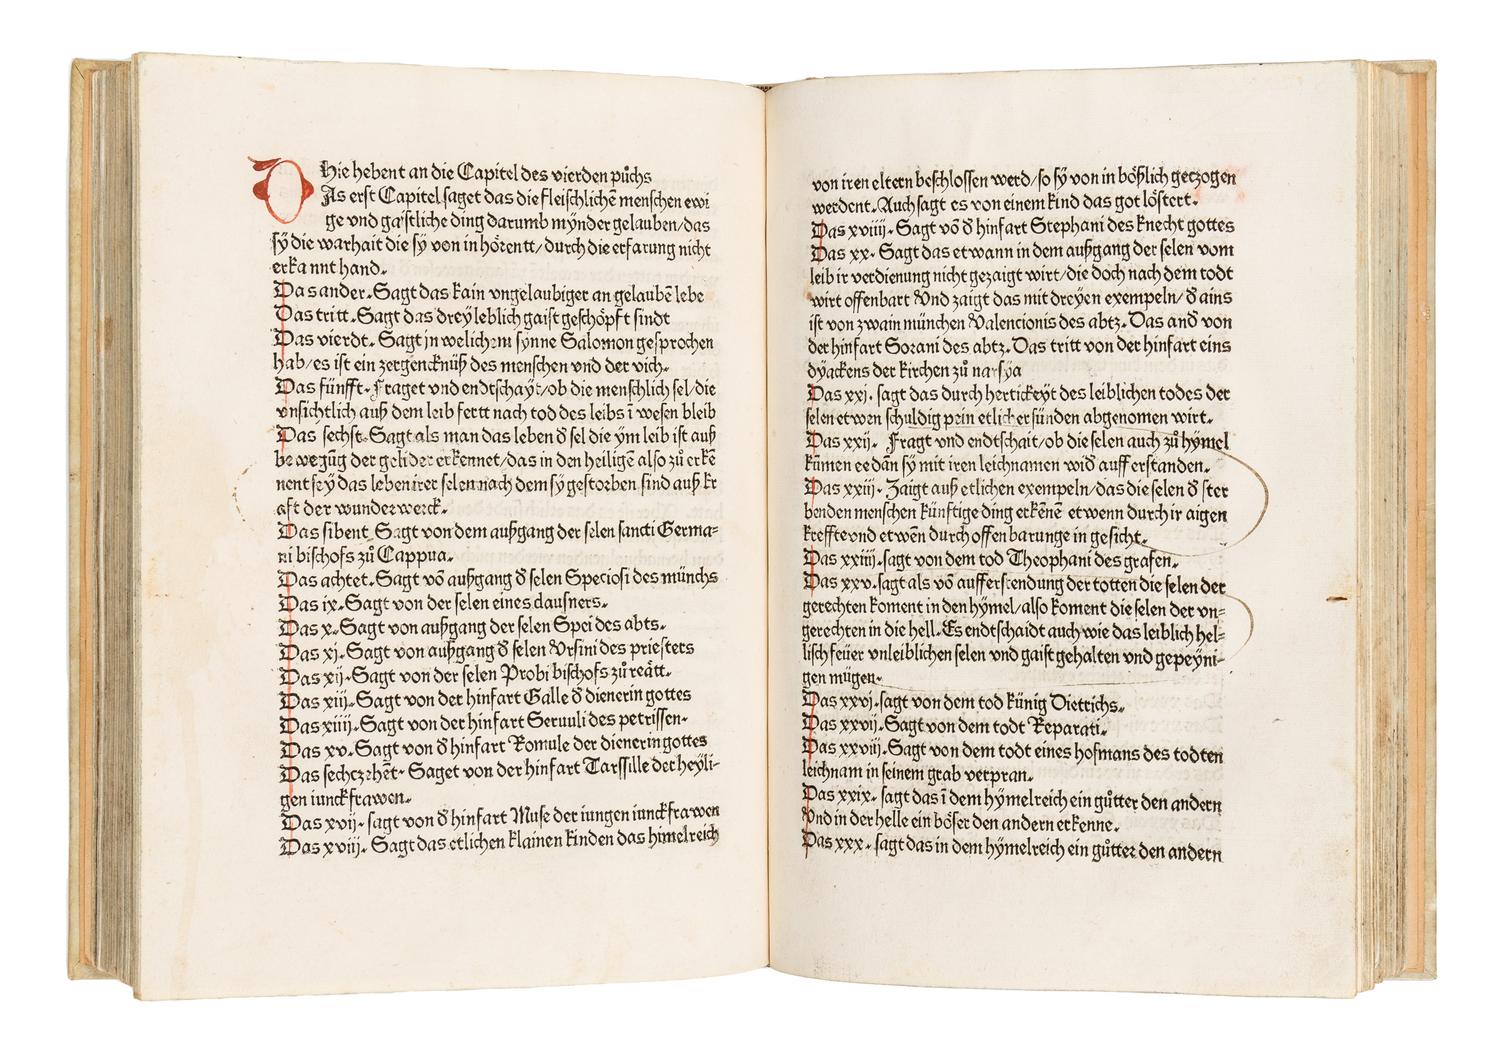 Hie hebent an die Capitel des vierden půchs
DAs erst Capitel saget das die fleischlichē menschen ewi
ge vnd gaistliche ding darumb mynder gelauben/das
sÿ die warhait die sÿ von in hörentt/durch die erfarung nicht
erkannt hand.
Das ander. Sagt das kain vngelaubiger an gelaubē lebe
Das tritt. Sagt das dreÿ leblich gaist geschöpft sindt
Das vierdt. Sagt jn welichem synne Salomon gesprochen
hab/es ist ein zergencknüß des menschen vnd der vich.
Das fünfft. Fraget vnd endtschayt/ob die menschlich sel/die
vnsichtlich auß dem leib fertt nach tod des leibs ī wesen bleib
Das sechst. Sagt als man das leben d̄ sel die ym leib ist auß
bewegūg der gelider erkennet/das in den heiligē also zů erkē
nent seÿ das leben irer selen nach dem sÿ gestorben sind auß kr
aft der wunderwerck.
Das sibent. Sagt von dem außgang der selen sancti Germa=
ni bischofs zů Cappua.
Das achtet. Sagt vō außgang d̄ selen Speciosi des münchs
Das ix. Sagt von der selen eines clausners.
Das x. Sagt von außgang der selen Spei des abts.
Das xj. Sagt von außgang d̄ selen Vrsini des priesters
Das xij. Sagt von der selen Probi bischofs zů reätt.
Das xiij. Sagt von der hinfart Galle d̄ dienerin gottes
Das xiiij. Sagt von der hinfart Seruuli des petrissen.
Das xv. Sagt von d̄ hinfart Romule der dienerin gottes
Das sechczehēt. Saget von der hinfart Tarssille der heyli-
gen iunckfrawen.
Das xvij. sagt von d̄ hinfart Muse der iungen iunckfrawen
Das xviij. Sagt das etlichen klainen kinden das himelreich
von iren eltern beschlossen werd/so sÿ von in bößlich gerzogen
werdent. Auch sagt es von einem kind das got löstert.
Das xviiij. Sagt vō d̄ hinfart Stephani des knecht gottes
Das xx. Sagt das etwann in dem außgang der selen vom
leib ir verdienung nicht gezaigt wirt/die doch nach dem todt
wirt offenbart Vnd zaigt das mit dreyen exempeln/d̄ ains
ist von zwain münchen Valencionis des abtz. Das and̄ von
der hinfart Sorani des abtz. Das tritt von der hinfart eins
dÿackens der kirchen zů narsÿa
Das xxj. sagt das durch hertickeÿt des leiblichen todes der
selen etwen schuldig pein etlicher sünden abgenomen wirt.
Das xxij. Fragt vnd endtschait/ob die selen auch zů hÿmel
kūmen ee dān sÿ mit iren leichnamen wid̄ aufferstanden.
Das xxiij. Zaigt auß etlichen exempeln/das die selen d̄ ster
benden menschen künftige ding erkēnē etwenn durch ir aigen
kreffte vnd etwēn durch offenbarunge in gesicht.
Das xxiiij. sagt von dem tod Theophani des grafen.
Das xxv. sagt als vō aufferstendung der totten die selen der
gerechten koment in den hÿmel/also koment die selen der vn=
gerechten in die hell. Es endtschaidt auch wie das leiblich hel=
lisch feüer vnleiblichen selen vnd gaist gehalten vnd gepeÿni-
gen mügen.
Das xxvj. sagt von dem tod künig Dietrichs.
Das xxvij. Sagt von dem todt Reparati.
Das xxviij. Sagt von dem todt eines hofmans des todten
leichnam in seinem grab verpran.
Das xxix. sagt das ī dem hÿmelreich ein gůtter den andern
Vnd in der helle ein böser den andern erkenne.
Das xxx. sagt das in dem hÿmelreich ein gůtter den andern